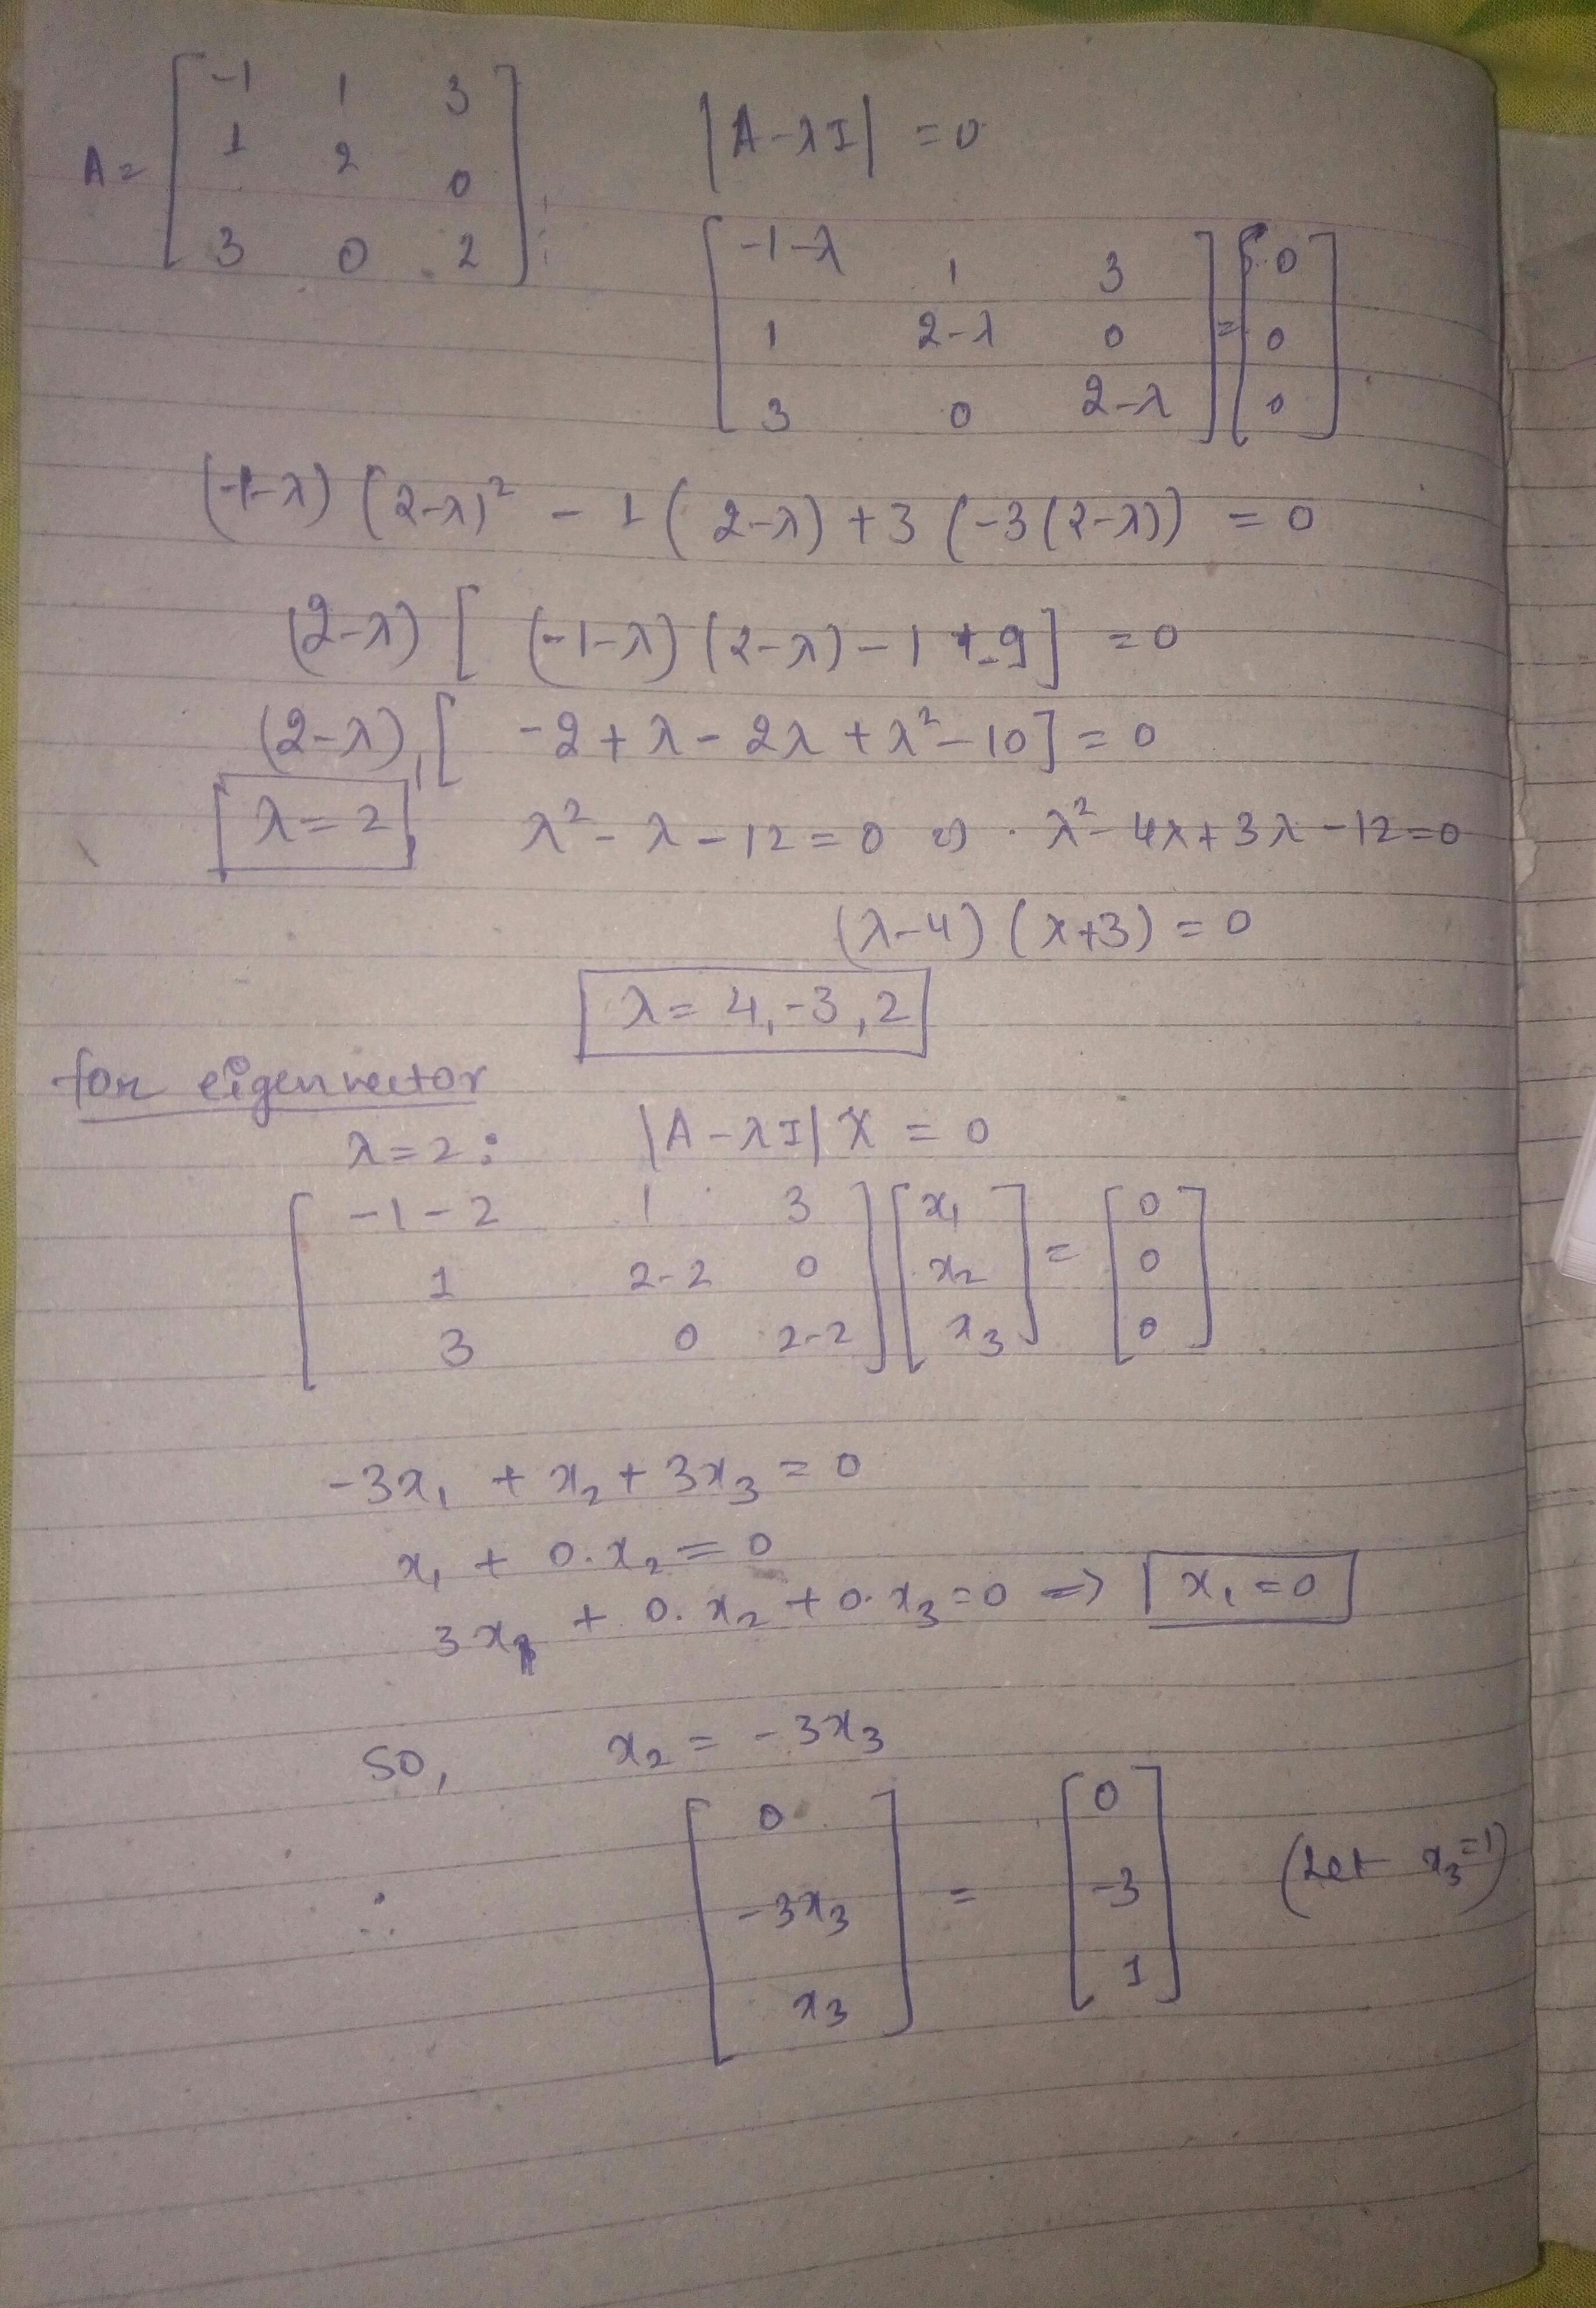 A = [ -1 1 3
1 2 0
3 0 2 ];
|A-λI| = 0
[ -1-λ 1 3
1 2-λ 0
3 0 2-λ ] = [ 0
0
0 ]
(-1-λ) (2-λ)² - 1 (2-λ) + 3 (-3(2-λ)) = 0
(2-λ) [ (-1-λ) (2-λ) - 1 - 9 ] = 0
(2-λ), [ -2 + λ - 2λ + λ² - 10 ] = 0
λ = 2, λ² - λ - 12 = 0 ⇒ λ² - 4λ + 3λ - 12 = 0
(λ-4) (λ+3) = 0
λ = 4, -3, 2
for eigenvector
λ = 2 : |A-λI| X = 0
[ -1-2 1 3
1 2-2 0
3 0 2-2 ] [ x₁
x₂
x₃ ] = [ 0
0
0 ]
-3x₁ + x₂ + 3x₃ = 0
x₁ + 0.x₂ = 0
3x₁ + 0.x₂ + 0.x₃ = 0 ⇒ x₁ = 0
so, x₂ = -3x₃
∴ [ 0
-3x₃
x₃ ] = [ 0
-3
1 ] (Let x₃=1)